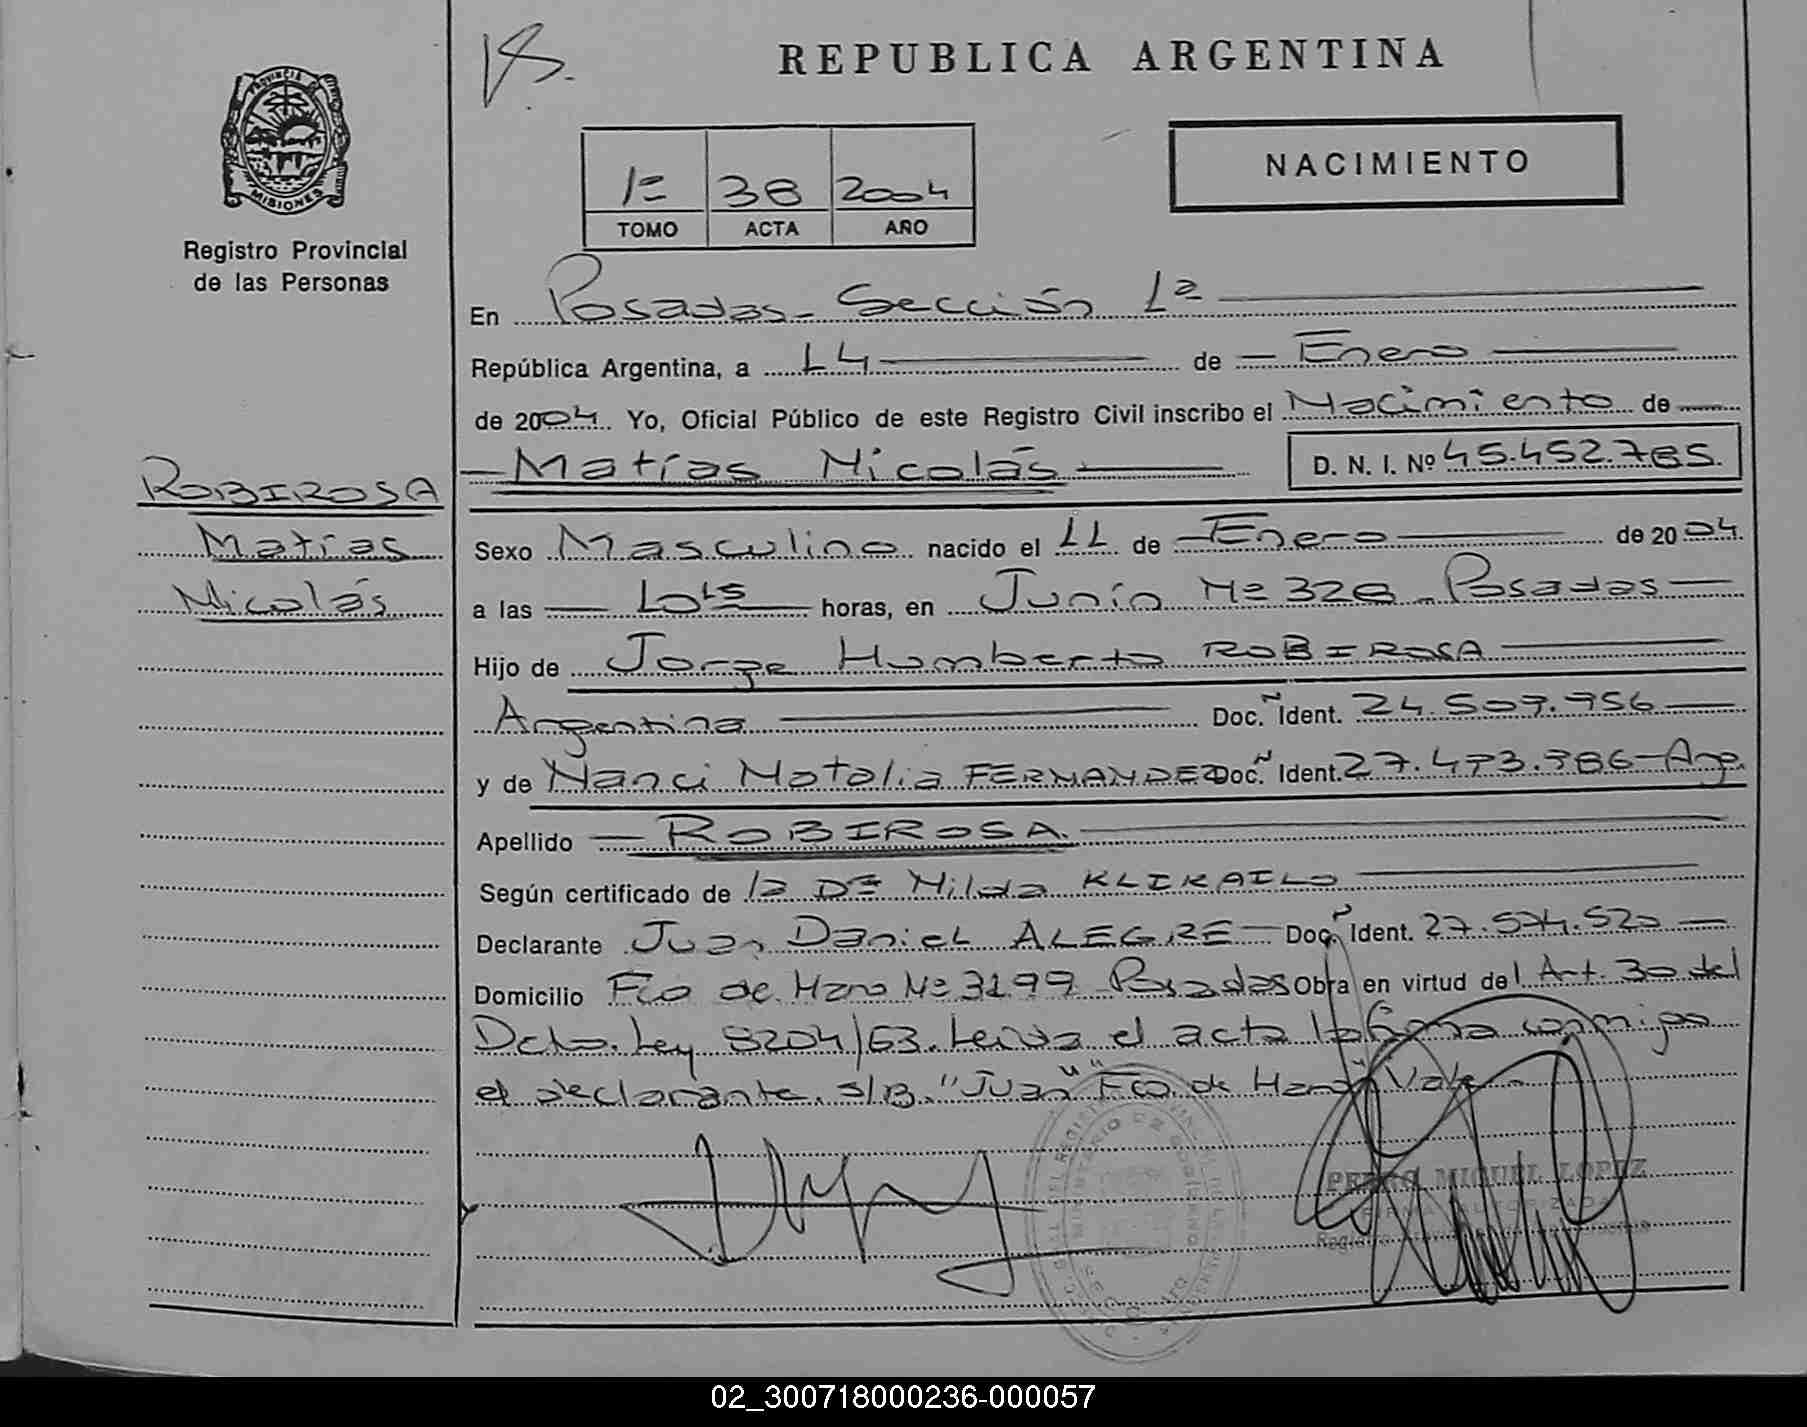 REPUBLICA ARGENTINA
PROVINCIA
MISIONES
Registro Provincial
de las Personas
NACIMIENTO
1º 38 2004
TOMO ACTA AÑO
En Posadas - Sección 1ª
República Argentina, a 14 de Enero
de 2004. Yo, Oficial Público de este Registro Civil inscribo el Nacimiento de
Matías Nicolás D. N. I. Nº 45.452.785.
ROBIROSA
Matías
Nicolás
Sexo Masculino nacido el 11 de Enero de 2004.
a las 10 15 horas, en Junín Nº 328 - Posadas
Hijo de Jorge Humberto ROBIROSA
Argentina Doc. Ident. 24.507.956
y de Nanci Natalia FERNANDEZ Doc. Ident. 27.473.986 - Arg.
Apellido ROBIROSA.
Según certificado de la Dª Hilda KLIKAILO
Declarante Juan Daniel ALEGRE Doc. Ident. 27.574.520
Domicilio Fco de Haro Nº 3199 Posadas Obra en virtud del Art. 30 del
Dcto. Ley 8204/63. Leída el acta la firma conmigo
el declarante. s/B. "Juan" "Fco. de Haro" Vale.
PEDRO MIGUEL LOPEZ
FIRMA AUTORIZADA
02_300718000236-000057